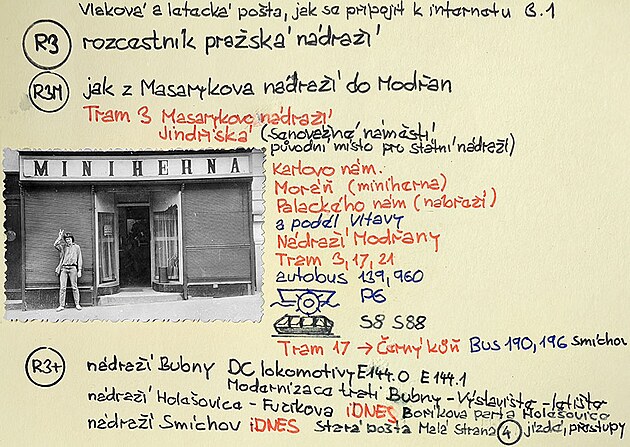 Vlaková a letacká pošta, jak se připojit k internetu B.1
R3 rozcestník pražská nádraží
R3M jak z Masarykova nádraží do Modřan
Tram 3 Masarykovo nádraží
Jindřišská (Senovážné náměstí
původní místo pro státní nádraží)
MINIHERNA
Karlovo nám.
Moráň (miniherna)
Palackého nám (nábřeží)
a podél Vltavy
Nádraží Modřany
Tram 3, 17, 21
autobus 139, 960
P6
S8 S88
Tram 17 → Černý kůň Bus 190, 196 Smíchov
R3+ nádraží Bubny DC lokomotivy E144.0 E144.1
Modernizace trati Bubny - Výstaviště - letiště
nádraží Holešovice - Fučíkova iDNES Holešovice
nádraží Smíchov iDNES Stará pošta Malá Strana 4 jízda, přestupy